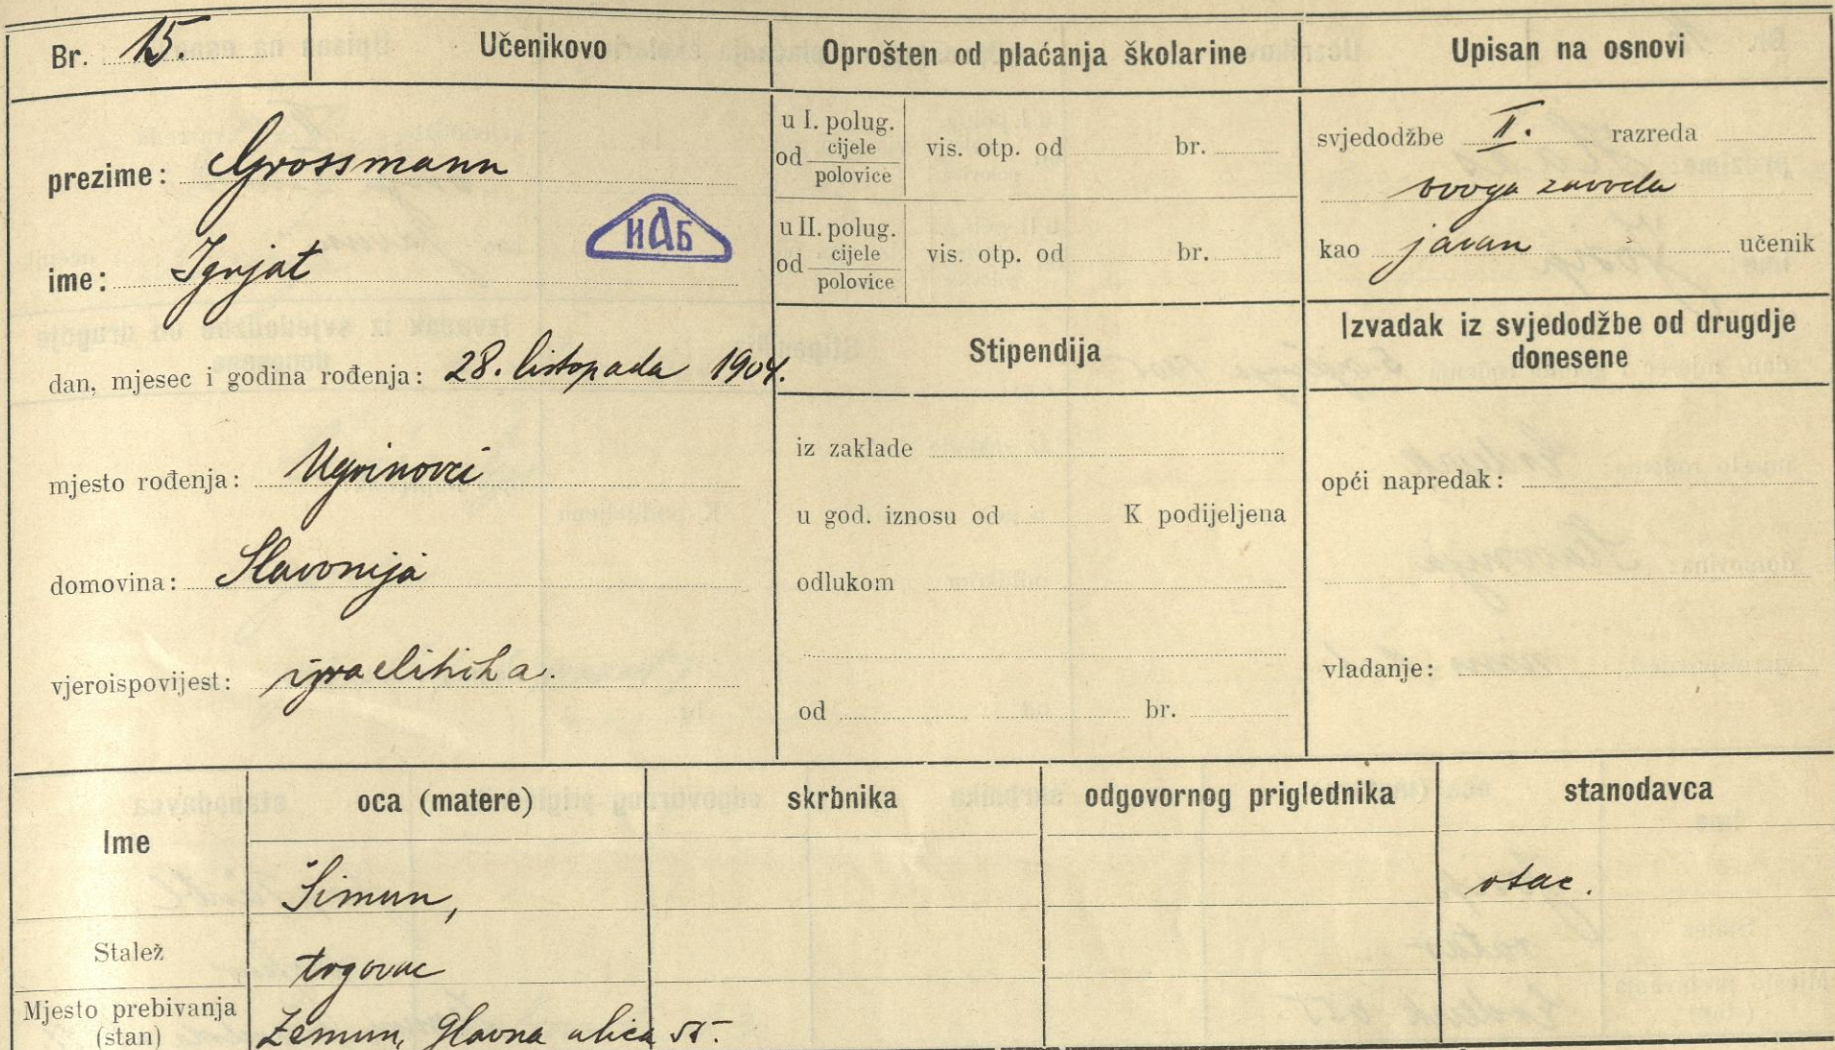 Br. 15. Učenikovo
prezime: Grossmann
ИАБ
ime: Ignjat
dan, mjesec i godina rođenja: 28. listopada 1904.
mjesto rođenja: Ugrinovci
domovina: Slavonija
vjeroispovijest: izraelitska.
Oprošten od plaćanja školarine
u I. polug.
od cijele
polovice
vis. otp. od br.
u II. polug.
od cijele
polovice
vis. otp. od br.
Stipendija
iz zaklade
u god. iznosu od K podijeljena
odlukom
od br.
Upisan na osnovi
svjedodžbe II. razreda
ovoga zavoda
kao javan učenik
Izvadak iz svjedodžbe od drugdje
donesene
opći napredak:
vladanje:
Ime oca (matere) skrbnika odgovornog priglednika stanodavca
Šimun, otac.
Stalež trgovac
Mjesto prebivanja
(stan) Zemun, Glavna ulica 55.